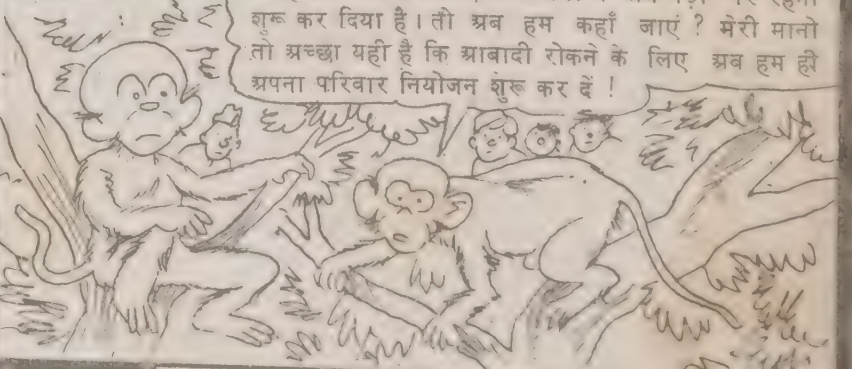 शुरू कर दिया है। तो अब हम कहाँ जाएं ? मेरी मानो
तो अच्छा यही है कि आबादी रोकने के लिए अब हम ही
अपना परिवार नियोजन शुरू कर दें !